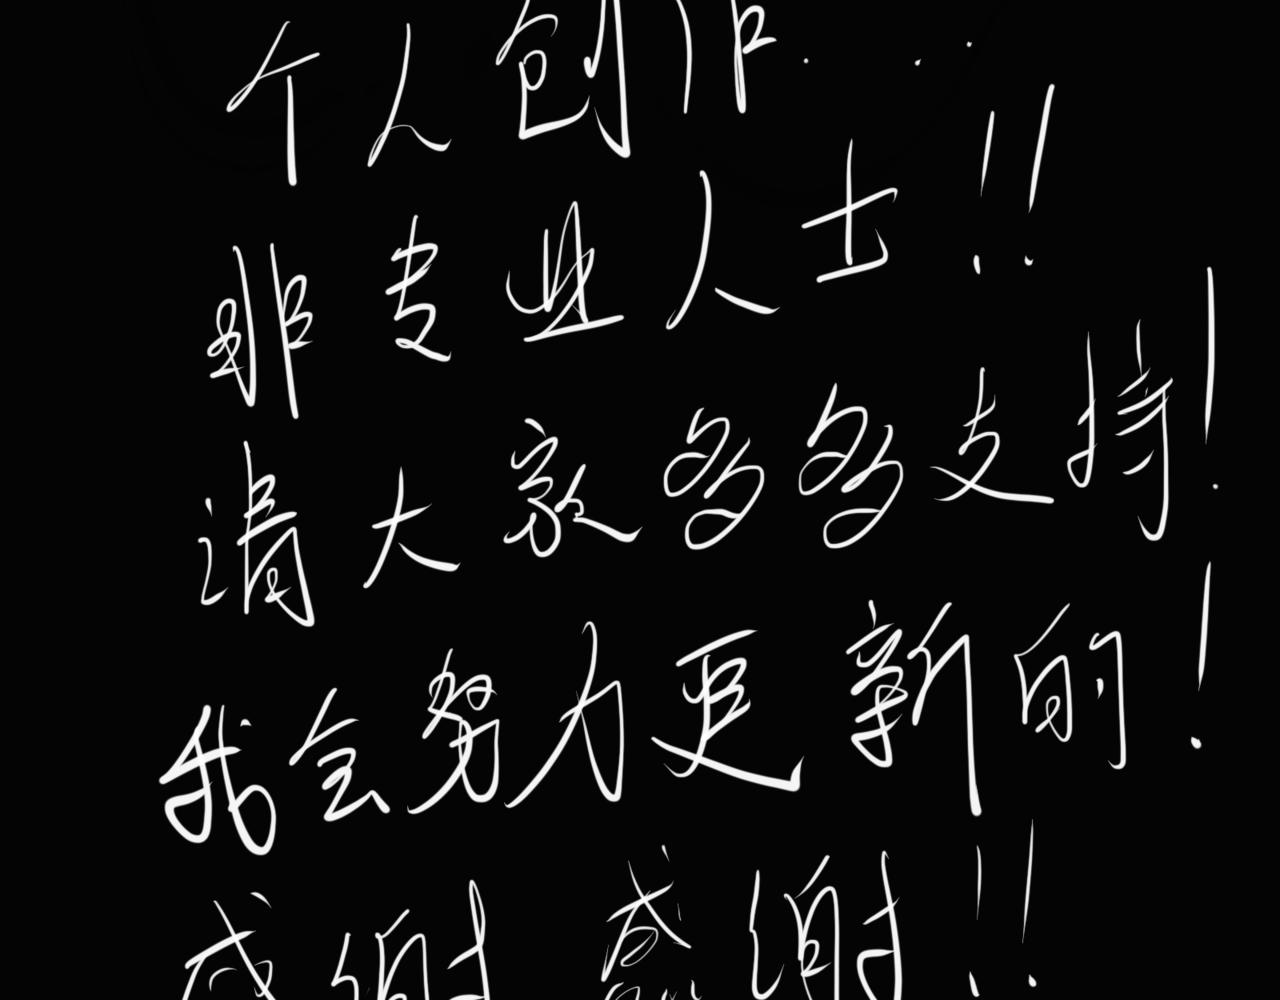 个人创作...
非专业人士!!
请大家多多支持!
我会努力更新的!
感谢 感谢!!